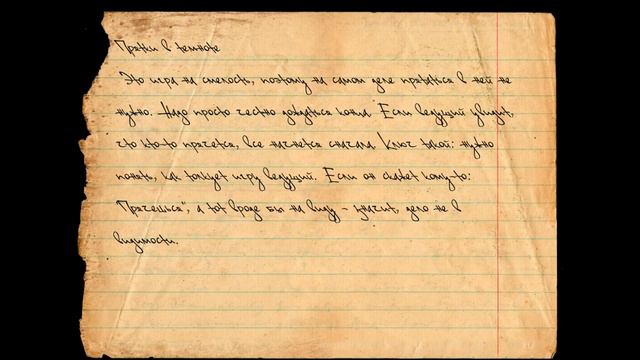 Прятки в темноте
Это игра на смелость, поэтому на самом деле прятаться в ней не
нужно. Надо просто честно дождаться конца. Если ведущий увидит,
что кто-то прячется, все начнется сначала. Ключ такой: нужно
понять, как толкует игру ведущий. Если он скажет кому-то:
"Прячешься", а тот вроде бы на виду - значит, дело не в
видимости.